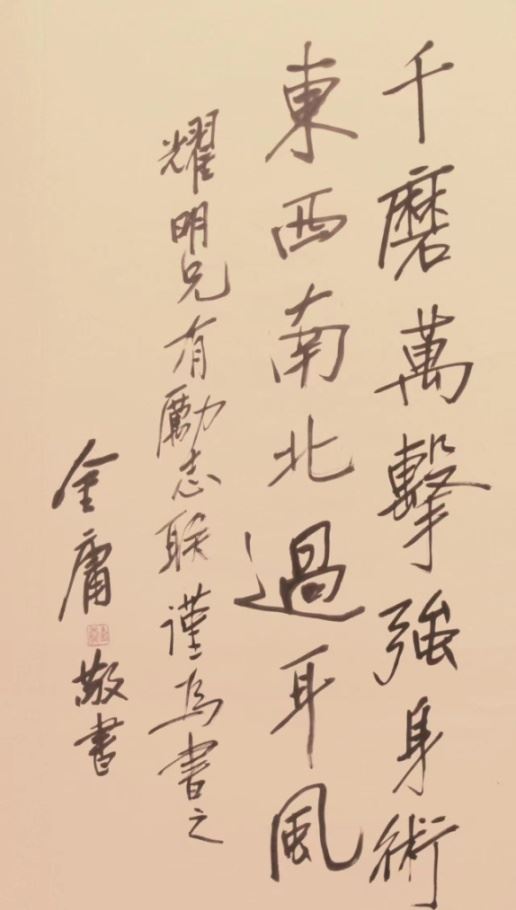 千磨萬擊強身術
東西南北過耳風
耀明兄有勵志联谨为書之
金庸敬書